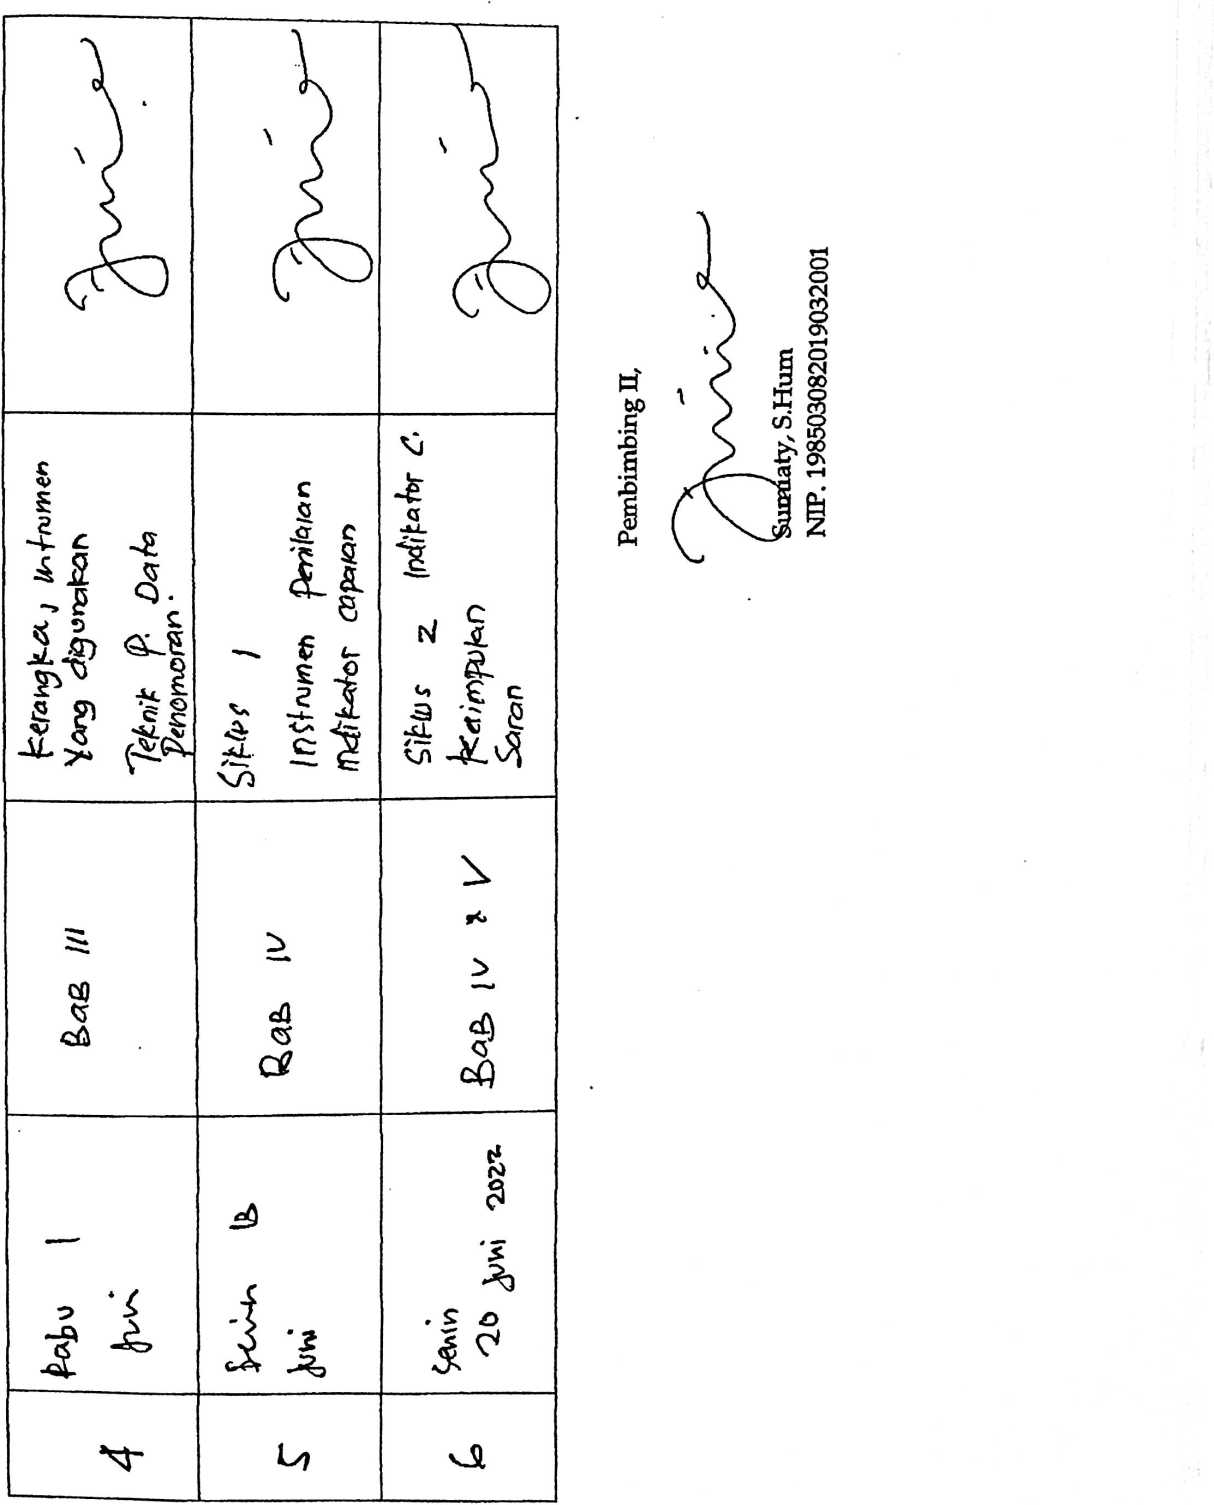 4
Rabu 1
Juni
BaB III
Kerangka, Intrumen
Yang digunakan
Teknik P. Data
Penomoran.
5
Senin 13
Juni
BaB IV
Siklus 1
Instrumen Penilaian
Indikator capaian
6
Senin
20 Juni 2022
BaB IV & V
Siklus 2 Indikator C.
Kesimpulan
Saran
Pembimbing II,
S.Hum
NIP. 198503082019032001